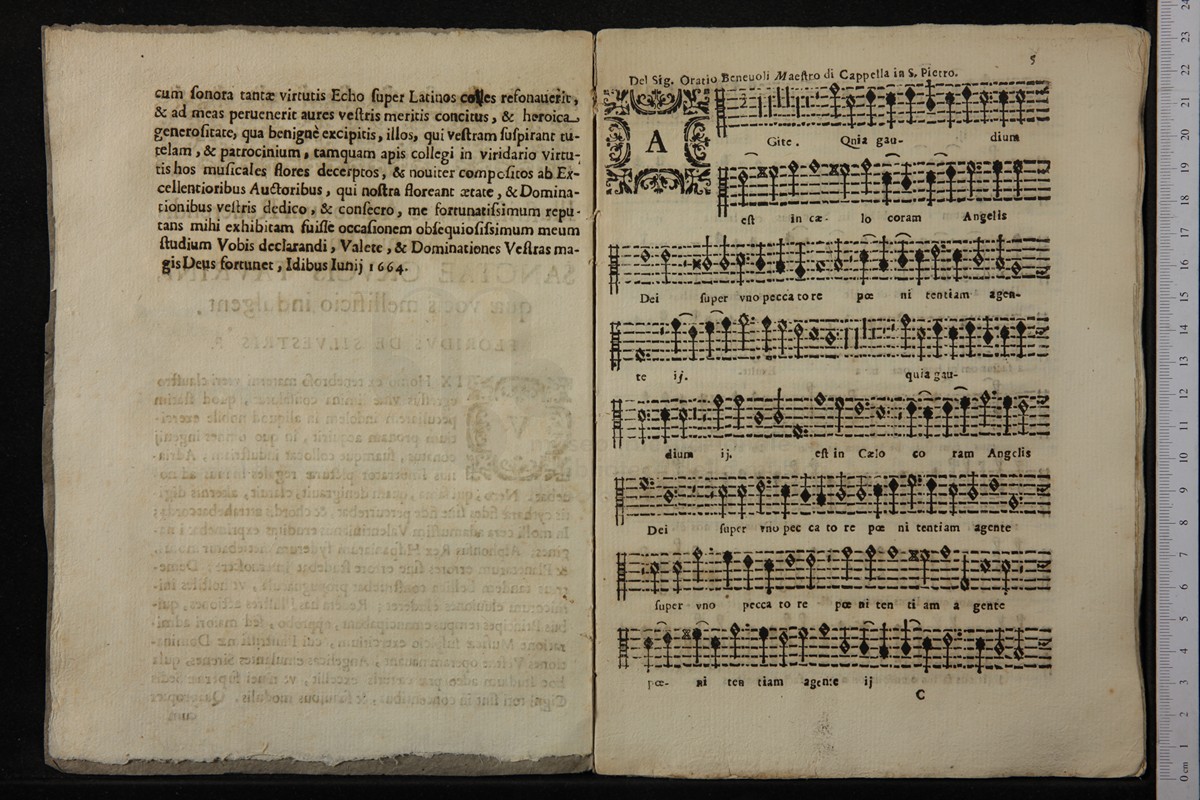 cum ſonora tantæ virtutis Echo ſuper Latinos colles reſonauerit,
& ad meas peruenerit aures veſtris meritis concitus, & heroica
generoſitate, qua benignè excipitis, illos, qui veſtram ſuſpirant tu-
telam, & patrocinium, tamquam apis collegi in viridario virtu-
tis hos muſicales flores decerptos, & nouiter compoſitos ab Ex-
cellentioribus Auctoribus, qui noſtra floreant ætate, & Domina-
tionibus veſtris dedico, & conſecro, me fortunatiſsimum repu-
tans mihi exhibitam fuiſſe occaſionem obſequioſiſsimum meum
ſtudium Vobis declarandi, Valete, & Dominationes Veſtras ma-
gis Deus fortunet, Idibus Iunij 1664.
5
Del Sig. Oratio Beneuoli Maeſtro di Cappella in S. Pietro.
A
Gite. Qnia gau- dium
eſt in cæ- lo coram Angelis
Dei ſuper vno pecca to re pœ ni tentiam agen-
te ij. quia gau-
dium ij. eſt in Cælo co ram Angelis
Dei ſuper vno pec ca to re pœ ni tentiam agente
ſuper vno pecca to re pœ ni ten ti am a gente
pœ- ni ten tiam agente ij
C